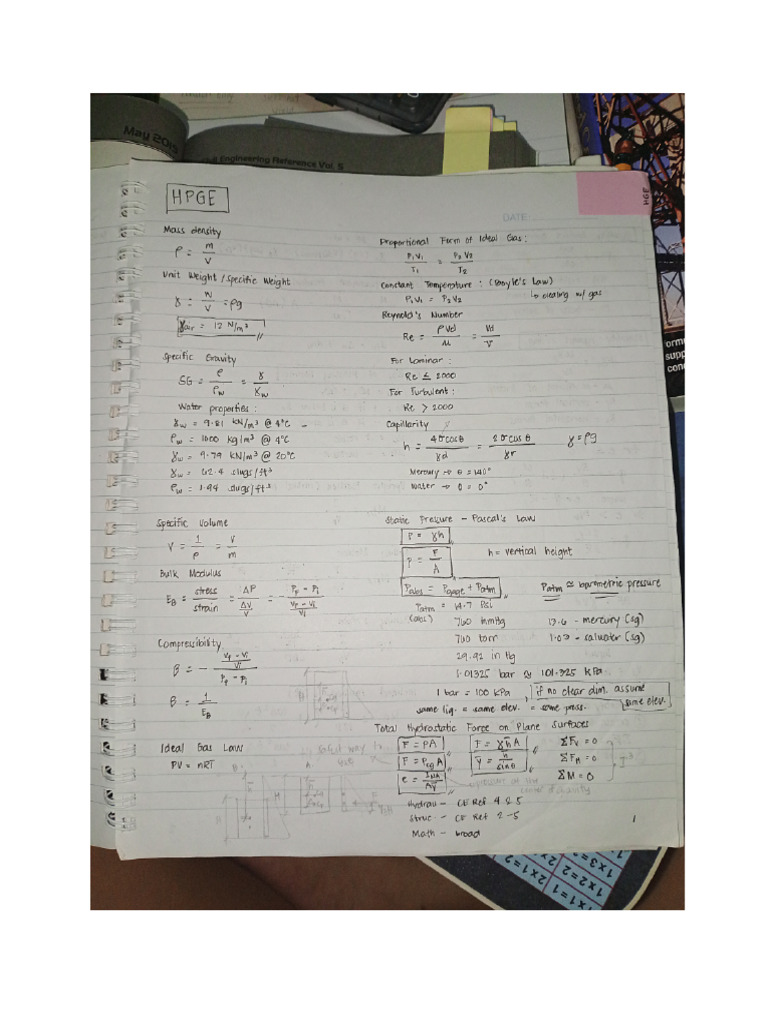 May 2015
Engineering Reference Vol. 5
HGE
DATE:
HPGE
Mass density
ρ = m / V
Unit Weight / Specific Weight
γ = W / V = ρg
γair = 12 N/m³
Specific Gravity
SG = ρ / ρw = γ / γw
Water properties:
γw = 9.81 kN/m³ @ 4°C
ρw = 1000 kg/m³ @ 4°C
γw = 9.79 kN/m³ @ 20°C
γw = 62.4 slugs/ft³
ρw = 1.94 slugs/ft³
Specific Volume
V = 1 / ρ = V / m
Bulk Modulus
EB = stress / strain = ΔP / (ΔV / V) = (Pf - Pi) / ((Vf - Vi) / Vi)
Compressibility
B = - ((Vf - Vi) / Vi) / (Pf - Pi)
B = 1 / EB
Ideal Gas Law
PV = nRT
Proportional Form of Ideal Gas:
P1V1 / T1 = P2V2 / T2
Constant Temperature: (Boyle's Law)
P1V1 = P2V2
↳ dealing w/ gas
Reynold's Number
Re = ρVd / μ = Vd / ν
For Laminar:
Re ≤ 2000
For Turbulent:
Re > 2000
Capillarity
h = 4σcosθ / γd = 2σcosθ / γr
γ = ρg
Mercury → θ = 140°
Water → θ = 0°
Static Pressure - Pascal's Law
P = γh
P = F / A
h = vertical height
Pabs = Pgage + Patm
Patm ≅ barometric pressure
Patm (abs) = 14.7 Psi
760 mmHg
13.6 - mercury (sg)
760 torr
1.03 - salwater (sg)
29.92 in Hg
1.01325 bar ≈ 101.325 kPa
1 bar = 100 kPa
if no clear dim. assume
same elev.
same liq. = same elev. = same press.
Total Hydrostatic Force on Plane Surfaces
F = PA
F = γh̄A
ΣFV = 0
F = Pcg A
ȳ = h̄ / sinθ
ΣFH = 0
e = INA / Aȳ
ΣM = 0
Hydrau - CE Ref 4 & 5
Struc - CE Ref 2 - 5
Math - broad
1
1x1=1
1x2=2
1x3=3
2x1=2